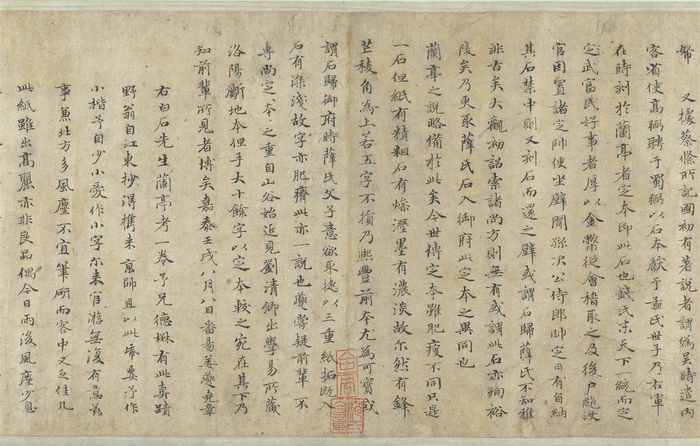 帶 又據蔡絛所記國初有著說者謂為吳時遣內
客省使高弼聘于蜀弼以石本獻于孟氏世子乃右軍
在時刻於蘭亭者定本即此石也錢氏末天下一統而定
定武富民好事者厚以金幣從會稽取之及後戶絕沒
官因置諸定帥便坐壁間孫次公侍郎帥定日有旨納
其石禁中則又刻石而還之壁或謂石歸薛氏不知雅
非古矣大觀初詔索諸尚方則無有或謂此石亦殉裕
陵矣乃更取薛氏石入御府此定本之異同也
蘭亭之說略備於此矣今世傳定本雖肥瘦不同只是
一石但紙有精粗石有燥溼墨有濃淡故尔然有鋒
芒稜角為上若五字不損乃熙豐前本尤為可寶或
謂石歸御府時薛氏父子意欲取捷以三重紙拓既入
石有深淺故字亦肥瘠此亦一說也夔嘗疑前輩不
專尚定本定本之重自山谷始近見劉清卿出學易所藏
洛陽斷地本但手大十餘字以定本較之宛在其下乃
知前輩所見者博矣嘉泰壬戌八月八日番昜姜夔堯章
右白石先生蘭亭考一卷予兄德楙有此真蹟
野翁自江東抄得攜来京師且以此帋要予作
小楷予自少小愛作小字尔来宦游無復有意
事兼北方多風塵不宜筆研而客中又乏佳几
此紙雖出高麗亦非良品偶今日雨後風塵少息